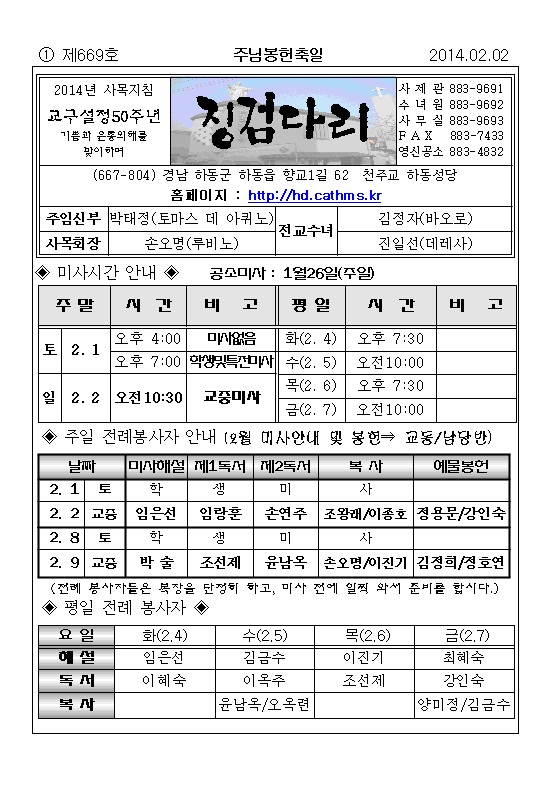 ① 제669호 주님봉헌축일 2014.02.02
2014년 사목지침
교구설정50주년
기쁨과 은총의해를
맞이하며
징검다리
사 제 관 883-9691
수 녀 원 883-9692
사 무 실 883-9693
F A X 883-7433
영신공소 883-4832
(667-804) 경남 하동군 하동읍 향교1길 62 천주교 하동성당
홈페이지 : http://hd.cathms.kr
주임신부 박태정(토마스 데 아퀴노) 전교수녀 김정자(바오로)
사목회장 손오명(루비노) 진일선(데레사)
◈ 미사시간 안내 ◈ 공소미사 : 1월26일(주일)
주 말 시 간 비 고 평 일 시 간 비 고
토 2. 1 오후 4:00 미사없음 화(2. 4) 오후 7:30
오후 7:00 학생및특전미사 수(2. 5) 오전10:00
일 2. 2 오전10:30 교중미사 목(2. 6) 오후 7:30
금(2. 7) 오전10:00
◈ 주일 전례봉사자 안내 (2월 미사안내 및 봉헌⇒ 교동/남당반)
날짜 미사해설 제1독서 제2독서 복 사 예물봉헌
2. 1 토 학 생 미 사
2. 2 교중 임은선 임랑훈 손연주 조왕래/이종호 정용문/강인숙
2. 8 토 학 생 미 사
2. 9 교중 박 술 조선제 윤남옥 손오명/이진기 김정희/정호연
(전례 봉사자들은 복장을 단정히 하고, 미사 전에 일찍 와서 준비를 합시다.)
◈ 평일 전례 봉사자 ◈
요 일 화(2.4) 수(2.5) 목(2.6) 금(2.7)
해 설 임은선 김금수 이진기 최혜숙
독 서 이혜숙 이옥주 조선제 강인숙
복 사 윤남옥/오옥련 양미정/김금수